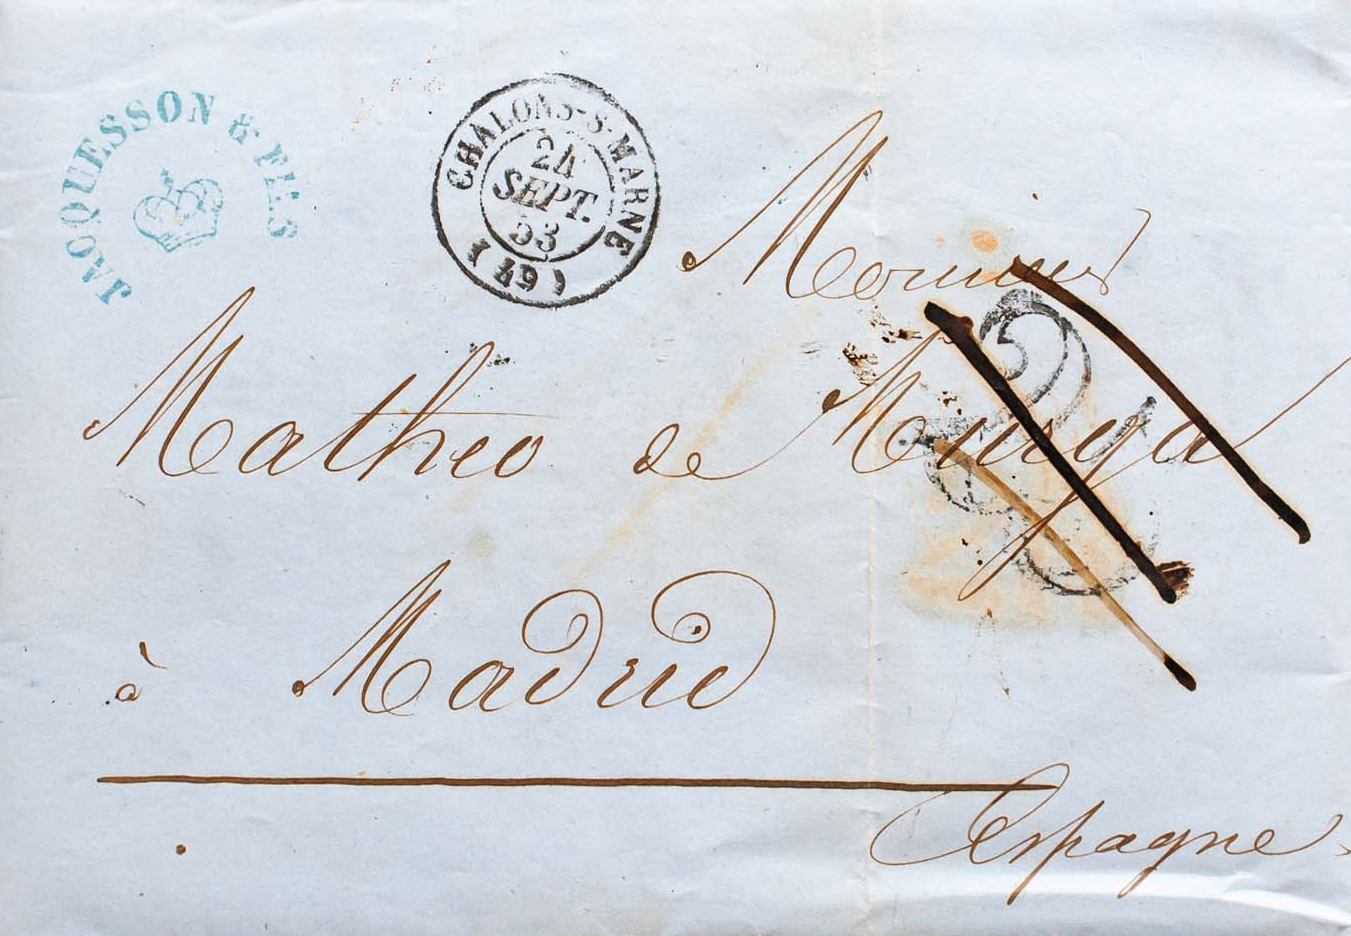 JACQUESSON & FILS
CHALONS-S-MARNE
24
SEPT.
53
(49)
Monsieur
Matheo de Murga
à Madrid
Espagne